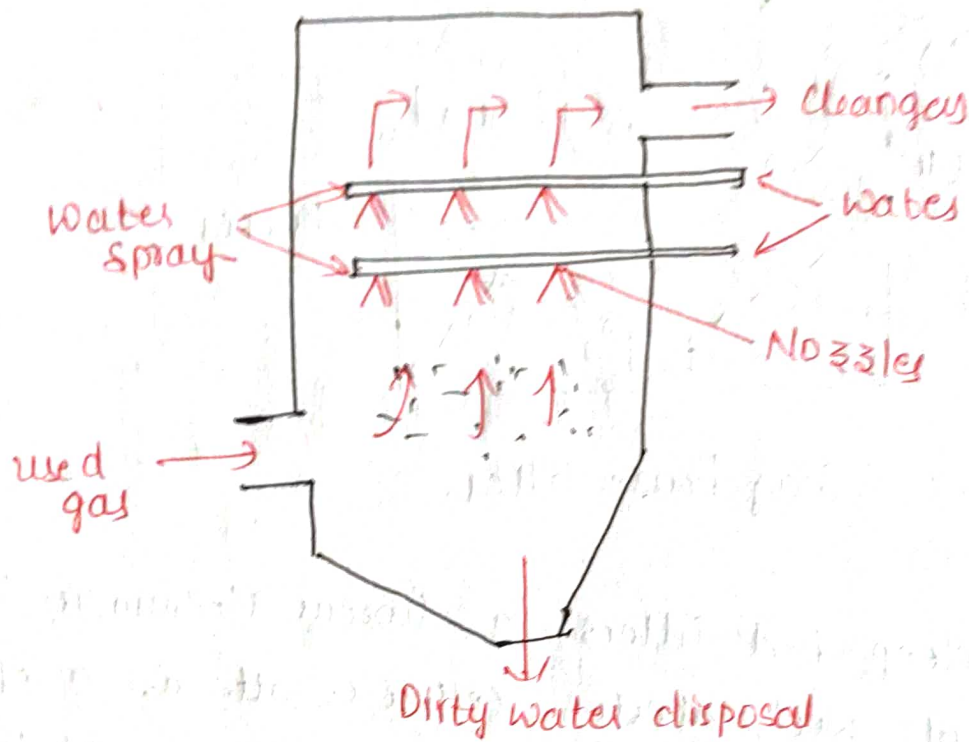 Cleangas
water
spray
water
Nozzles
used
gas
Dirty water disposal